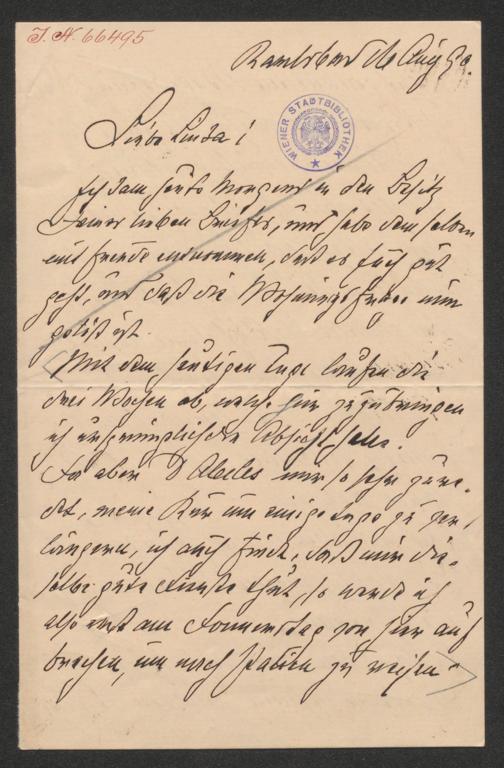 J. N. 66495
Karlsbad 16 Aug 90.
WIENER STADTBIBLIOTHEK
Liebe Linda!
Ich kam heute Morgens in den Besitz
Deines lieben Briefes, und habe demselben
mit Freude entnommen, daß es Euch gut
geht, und daß die Wohnungsfrage nun
gelöst ist.
Mit dem heutigen Tage laufen die
drei Wochen ab, welche hier zuzubringen
ich ursprünglich die Absicht hatte.
Da aber Dr Abeles mir so sehr zure-
det, meine Kur um einige Tage zu ver-
längern, ich auch finde, daß mir die-
selbe gute Dienste thut, so werde ich
also erst am Donnerstag von hier auf
brechen, um nach zu reisen